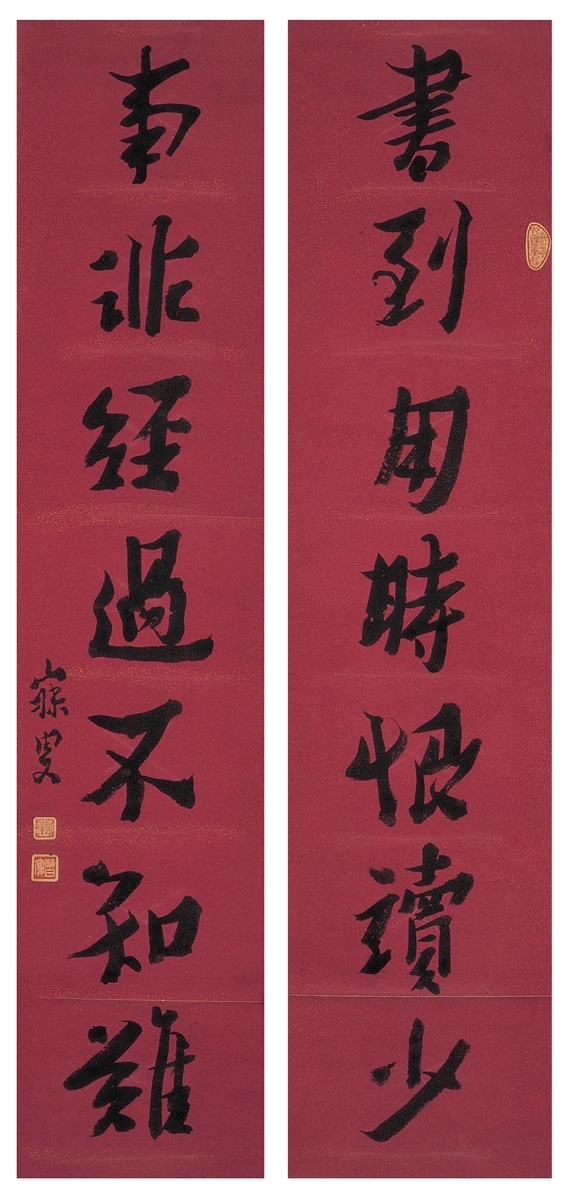 書到用時恨讀少
事非經過不知難
寐叟